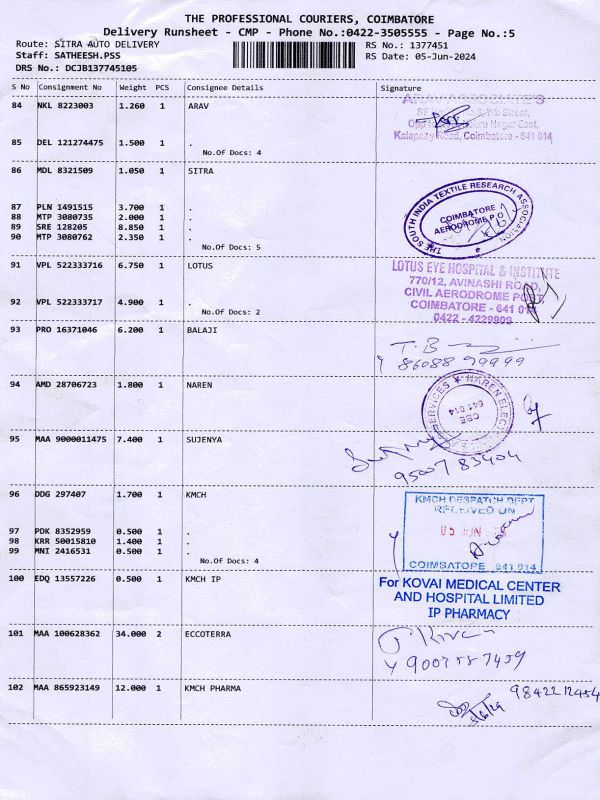 THE PROFESSIONAL COURIERS, COIMBATORE
Delivery Runsheet - CMP - Phone No.:0422-3505555 - Page No.:5
Route: SITRA AUTO DELIVERY RS No.: 1377451
Staff: SATHEESH.PSS RS Date: 05-Jun-2024
DRS No.: DCJB137745105
S No Consignment No Weight PCS Consignee Details Signature
84 NKL 8223003 1.260 1 ARAV
Kalapatty Road, Coimbatore - 641 014
85 DEL 121274475 1.500 1 .
No.Of Docs: 4
86 MDL 8321509 1.050 1 SITRA
THE SOUTH INDIA TEXTILE RESEARCH ASSOCIATION
COIMBATORE
AERODROME P.O
87 PLN 1491515 3.700 1 .
88 MTP 3080735 2.000 1 .
89 SRE 128205 8.850 1 .
90 MTP 3080762 2.350 1 .
No.Of Docs: 5
91 VPL 522333716 6.750 1 LOTUS
LOTUS EYE HOSPITAL & INSTITUTE
770/12, AVINASHI ROAD,
CIVIL AERODROME POST,
COIMBATORE - 641 014
0422 - 4229909
92 VPL 522333717 4.900 1 .
No.Of Docs: 2
93 PRO 16371046 6.200 1 BALAJI
86088 99999
94 AMD 28706723 1.800 1 NAREN
CBE
641 014
95 MAA 9000011475 7.400 1 SUJENYA
95007 83404
96 DDG 297407 1.700 1 KMCH
KMCH DESPATCH DEPT
RECEIVED ON
05 JUN
COIMBATORE 641 014
97 PDK 8352959 0.500 1 .
98 KRR 50015810 1.400 1 .
99 MNI 2416531 0.500 1 .
No.Of Docs: 4
100 EDQ 13557226 0.500 1 KMCH IP
For KOVAI MEDICAL CENTER
AND HOSPITAL LIMITED
IP PHARMACY
101 MAA 100628362 34.000 2 ECCOTERRA
102 MAA 865923149 12.000 1 KMCH PHARMA
9842212454
5/6/24